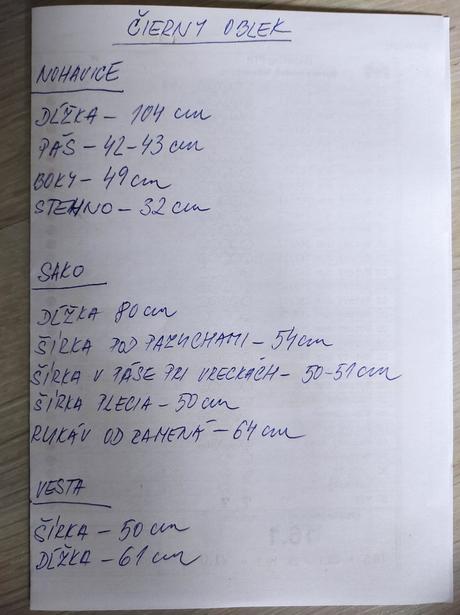 ČIERNY OBLEK
NOHAVICE
DĹŽKA - 104 cm
PÁS - 42-43 cm
BOKY - 49 cm
STEHNO - 32 cm
SAKO
DĹŽKA 80 cm
ŠÍRKA POD PAZUCHAMI - 54 cm
ŠÍRKA V PÁSE PRI VRECKÁCH - 50-51 cm
ŠÍRKA PLECIA - 50 cm
RUKÁV OD RAMENÁ - 64 cm
VESTA
ŠÍRKA - 50 cm
DĹŽKA - 61 cm